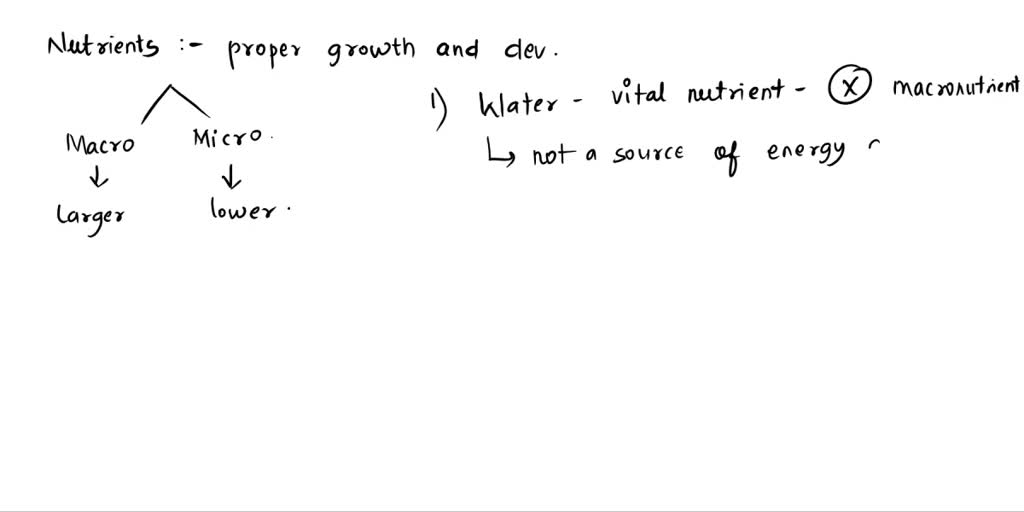 Nutrients :- proper growth and dev.
Macro Micro.
↓ ↓
Larger lower.
1) Water - vital nutrient - ⓧ macronutrient
↳ not a source of energy